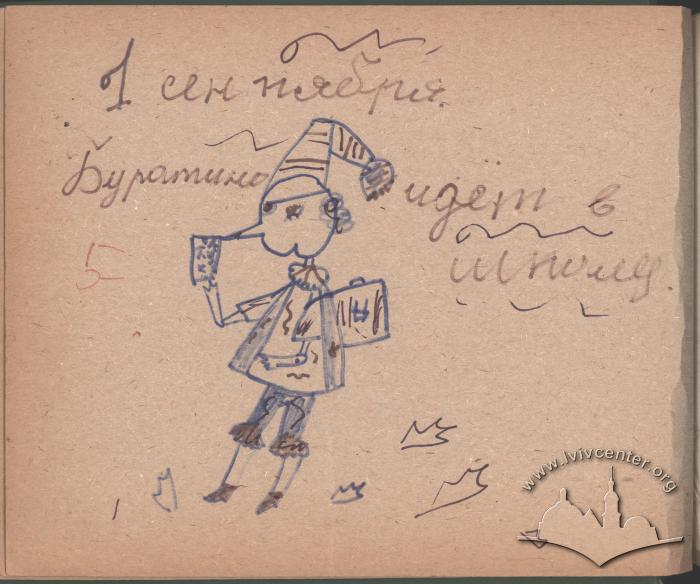 1 сентября.
Буратино идёт в
школу.
5
www.lvivcenter.org